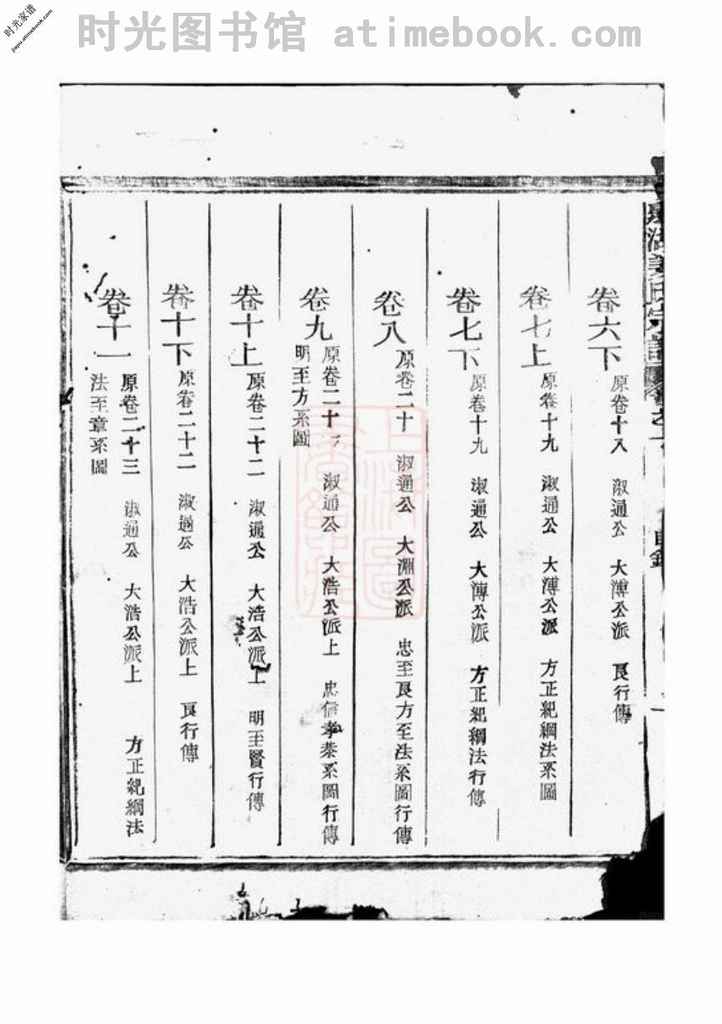 时光图书馆 atimebook.com
时光家谱
jiapu.atimebook.com
湖姜氏宗譜
目錄
卷六下 原卷十八 淑通公 大溥公派 良行傳
卷七上 原卷十九 淑通公 大溥公派 方正紀綱法系圖
卷七下 原卷十九 淑通公 大溥公派 方正紀綱法行傳
卷八 原卷二十 淑通公 大淵公派 忠至良方至法系圖行傳
卷九 原卷二十 淑通公 大浩公派上 忠信孝泰系圖行傳
明至方系圖
卷十上 原卷二十二 淑通公 大浩公派上 明至賢行傳
卷十下 原卷二十二 淑通公 大浩公派上 良行傳
卷十一 原卷二十三 淑通公 大浩公派上 方正紀綱法
法至章系圖